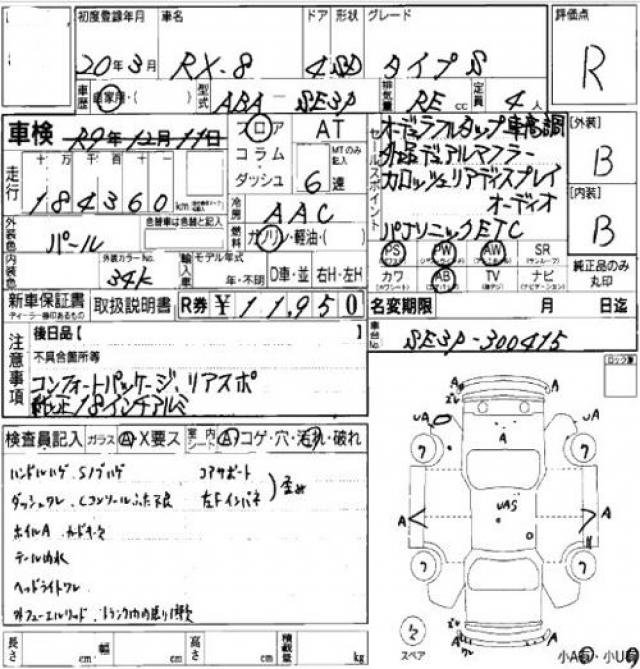 初度登録年月 車名 ドア 形状 グレード 評価点
20年3月 RX-8 4 SD タイプS R
車歴 自家用・( ) 型式 ABA-SE3P 排気量 RE cc 定員 4人
車検 R9年12月11日 フロア AT セールスポイント オーディラフルタップ車高調 [外装]
コラム・ MTのみ記入 外品デュアルマフラー B
走行 十 万 千 百 十 ダッシュ 6速 カロッツェリアディスプレイ
184360km オーディオ [内装]
冷房 AAC パナソニックETC B
外装色 パール 色替車は色替と記入 燃料 ガソリン・軽油・( )
PS PW AW SR 純正品のみ丸印
内装色 外装カラーNo. 34K 輸入車 モデル年式 年・不明 D車・並 右H・左H カワ AB TV ナビ
新車保証書 取扱説明書 R券 ¥11,950 名変期限 月 日迄
ディーラー捺印あるもの
注意事項 後日品【 】 車台No. SE3P-300415
不具合箇所等
コンフォートパッケージ、リアスポ
純正18インチアルミ
検査員記入 ガラス A・X要ス 室内シート A・コゲ・穴・汚れ・破れ
ハンドルハゲ、Sノブハゲ コアサポート
ダッシュワレ、Cコンソールふた不良 左Fインパネ
ホイルA
テール内水
ヘッドライトワレ
A A
uA uA
A
uAS
A A
スペア
長さ cm 幅 cm 高さ cm 積載量 kg